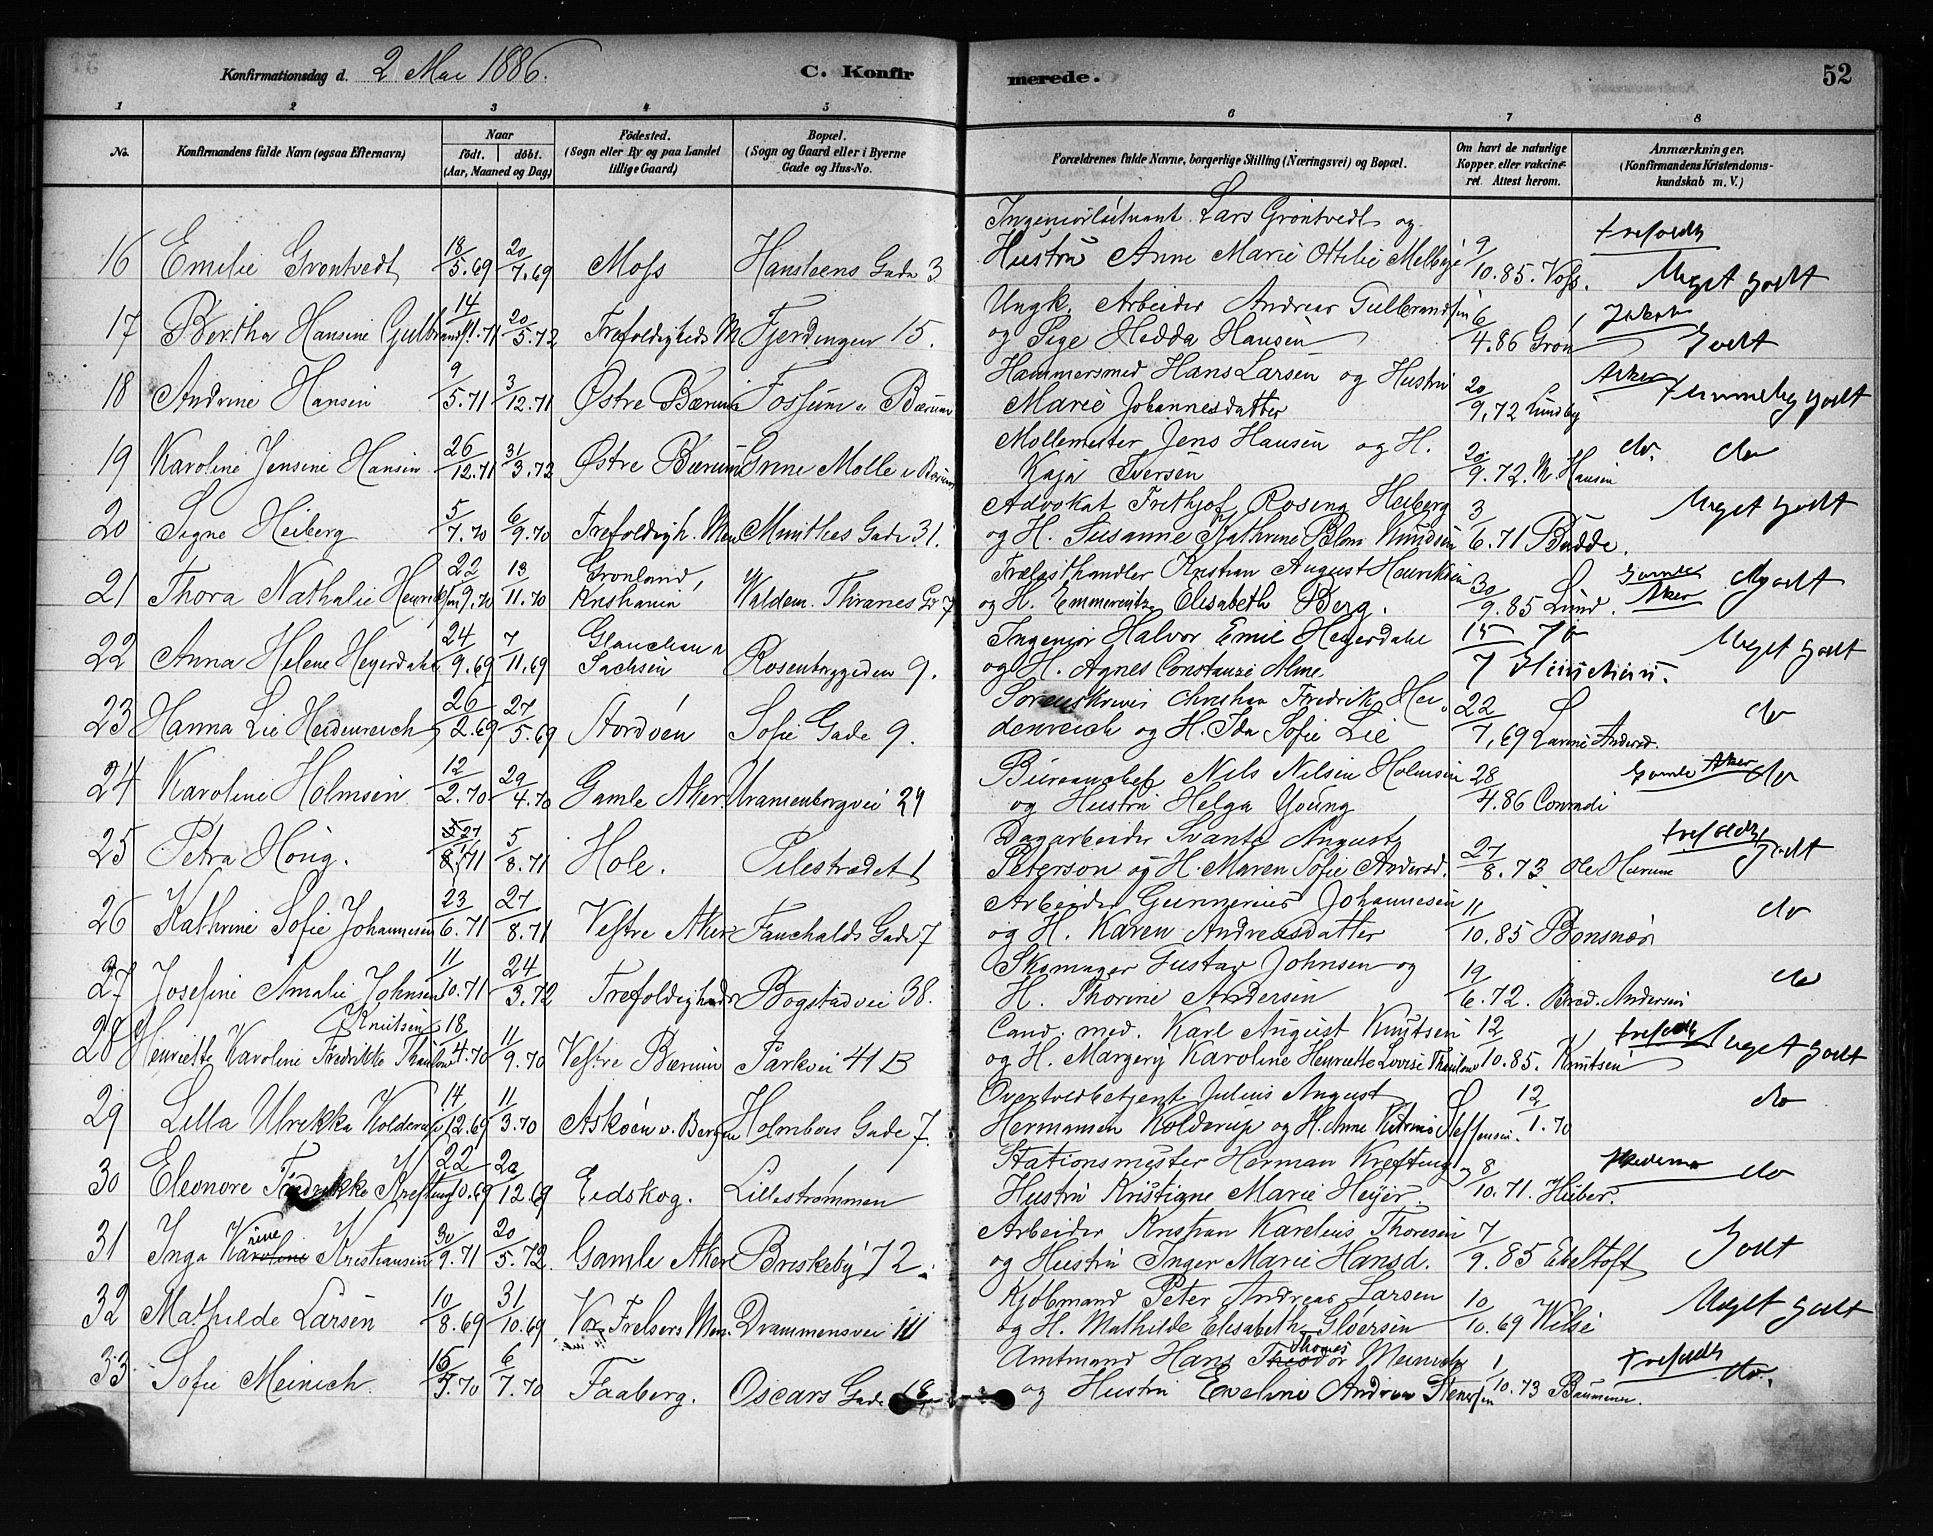 Konfirmationsdag d. 2 Mai 1886.
C. Konfirmerede.
52
1 2 3 4 5 6 7 8
No.
Konfirmandens fulde Navn (ogsaa Efternavn)
Naar
födt. döbt.
(Aar, Maaned og Dag)
Födested.
(Sogn eller By og paa Landet tillige Gaard)
Bopæl.
(Sogn og Gaard eller i Byerne Gade og Hus-No.
Forældrenes fulde Navne, borgerlige Stilling (Næringsvei) og Bopæl.
Om havt de naturlige Kopper eller vakcineret. Attest herom.
Anmærkninger,
(Konfirmandens Kristendomskundskab m. V.)
16 Emilie Grøntvedt 18/5.69 20/7.69 Moss Hansteens Gade 3 Ingeniørløitnant Lars Grøntvedt og Hustru Anne Marie Ottilie Melbye 9/10.85. Voss. trefoldh Meget godt
17 Bertha Hansine Gulbrands 14/11.71 20/5.72 Trefoldigheds M Fjerdingen 15. Ungk. Arbeider Andreas Gulbrandsen og Pige Hedda Hansen 6/4.86 Grøn Jakob Godt
18 Andrine Hansen 9/5.71 3/12.71 Østre Bærum Fossum i Bærum Hammersmed Hans Larsen og Hustru Marie Johannesdatter 20/9.72 Lundby Aker Temmelig godt
19 Karoline Jensine Hansen 26/12.71 31/3.72 Østre Bærum Grini Mølle i Bærum Møllemester Jens Hansen og H. Kaja Iversen 20/9.72. M Hansen do. do
20 Signe Heiberg 5/7.70 6/9.70 Trefoldigh. Men Munthes Gade 31. Advokat Frithjof Rosing Heiberg og H. Susanne Kathrine Blom Knudsen 3/6.71 Budde. Meget godt
21 Thora Nathalie Henriksen 22/9.70 13/11.70 Grønland, Kristiania Waldem. Thranes Gd 7 Trælasthandler Kristian August Henriksen og H. Emmerentze Elisabeth Berg. 30/9.85 Lund. Gamle Aker Mgodt
22 Anna Helene Heyerdahl 24/9.69 7/11.69 Glauchau i Sachsen Rosenborggaden 9. Ingeniør Halvor Emil Heyerdahl og H. Agnes Constanze Alme 15/7 70 Meget godt
23 Hanna Lie Heidenreich 26/2.69 27/5.69 Stordøen Sofie Gade 9. Sorenskriver Christian Fredrik Heidenreich og H. Ida Sofie Lie 22/7.69 Andersd. do
24 Karoline Holmsen 12/2.70 29/4.70 Gamle Aker Uranienborgvei 29 Bureauchef Nils Nilsen Holmsen og Hustru Helga Young 28/4.86 Conradi Gamle Aker do
25 Petra Høiig. 27/1.71 5/8.71 Hole. Pilestrædet 1 Dagarbeider Svante August Peterson og H. Maren Sofie Andersd. 27/8.73 Ole trefoldh Godt
26 Kathrine Sofie Johannesen 23/6.71 27/8.71 Vestre Aker Fauchalds Gade 7 Arbeider Gunnerius Johannesen og H. Karen Andreasdatter 11/10.85 Bonsnæs do
27 Josefine Amalie Johnsen 11/10.71 24/3.72 Trefoldigheds Bogstadvei 38. Skomager Gustav Johnsen og H. Thorine Andersen 19/6.72. Bred. Andersen do
28 Henriette Karoline Fredrikke Thaulow Knutsen 18/4.70 11/9.70 Vestre Bærum Parkvei 41 B Cand. med. Karl August Knutsen og H. Margery Karoline Henriette Lovise Thaulow 12/10.85. Knutsen trefoldh Meget godt
29 Lilla Ulrikka Kolderup 14/12.69 11/3.70 Askøen v. Bergen Holmboes Gade 7. Overtoldbetjent Julius August Hermansen Kolderup og H. Anne Katrine Steffensen. 12/1.70 do
30 Eleonore Fredrikke Krefting 22/10.69 29/12.69 Eidskog. Lillestrømmen Stationsmester Herman Krefting og Hustru Kristiane Marie Heyer. 8/10.71. Huber. do
31 Inga Karoline rine Kristiansen 30/9.71 20/5.72. Gamle Aker Briskeby 72. Arbeider Kristian Karelius Thoresen og Hustru Inger Marie Hansd. 7/9.85 Ebeltoft Godt
32 Mathilde Larsen 10/8.69 31/10.69 Vor Frelsers Men. Drammensvei 111 Kjøbmand Peter Andreas Larsen og H. Mathilde Elisabeth Gløersen 10/10.69 Wilse Meget godt
33 Sofie Meinich. 15/5.70 6/7.70 Faaberg. Oscars Gade Amtmand Hans Theodor Thomes Meinich og Hustru Eveline Andrea Stenersen 1/10.73 trefoldh do.